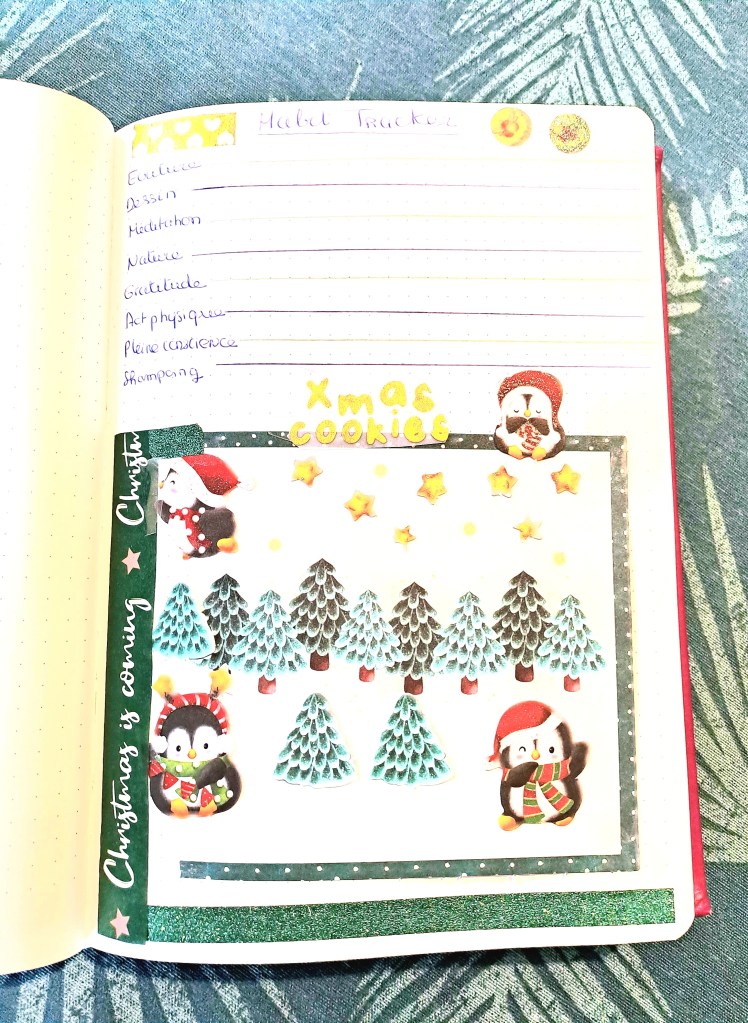 Habit Tracker
Ecriture
Dessin
Méditation
Nature
Gratitude
Act physique
Pleine conscience
Shampoing
Xmas
cookies
Christm
Christmas is coming